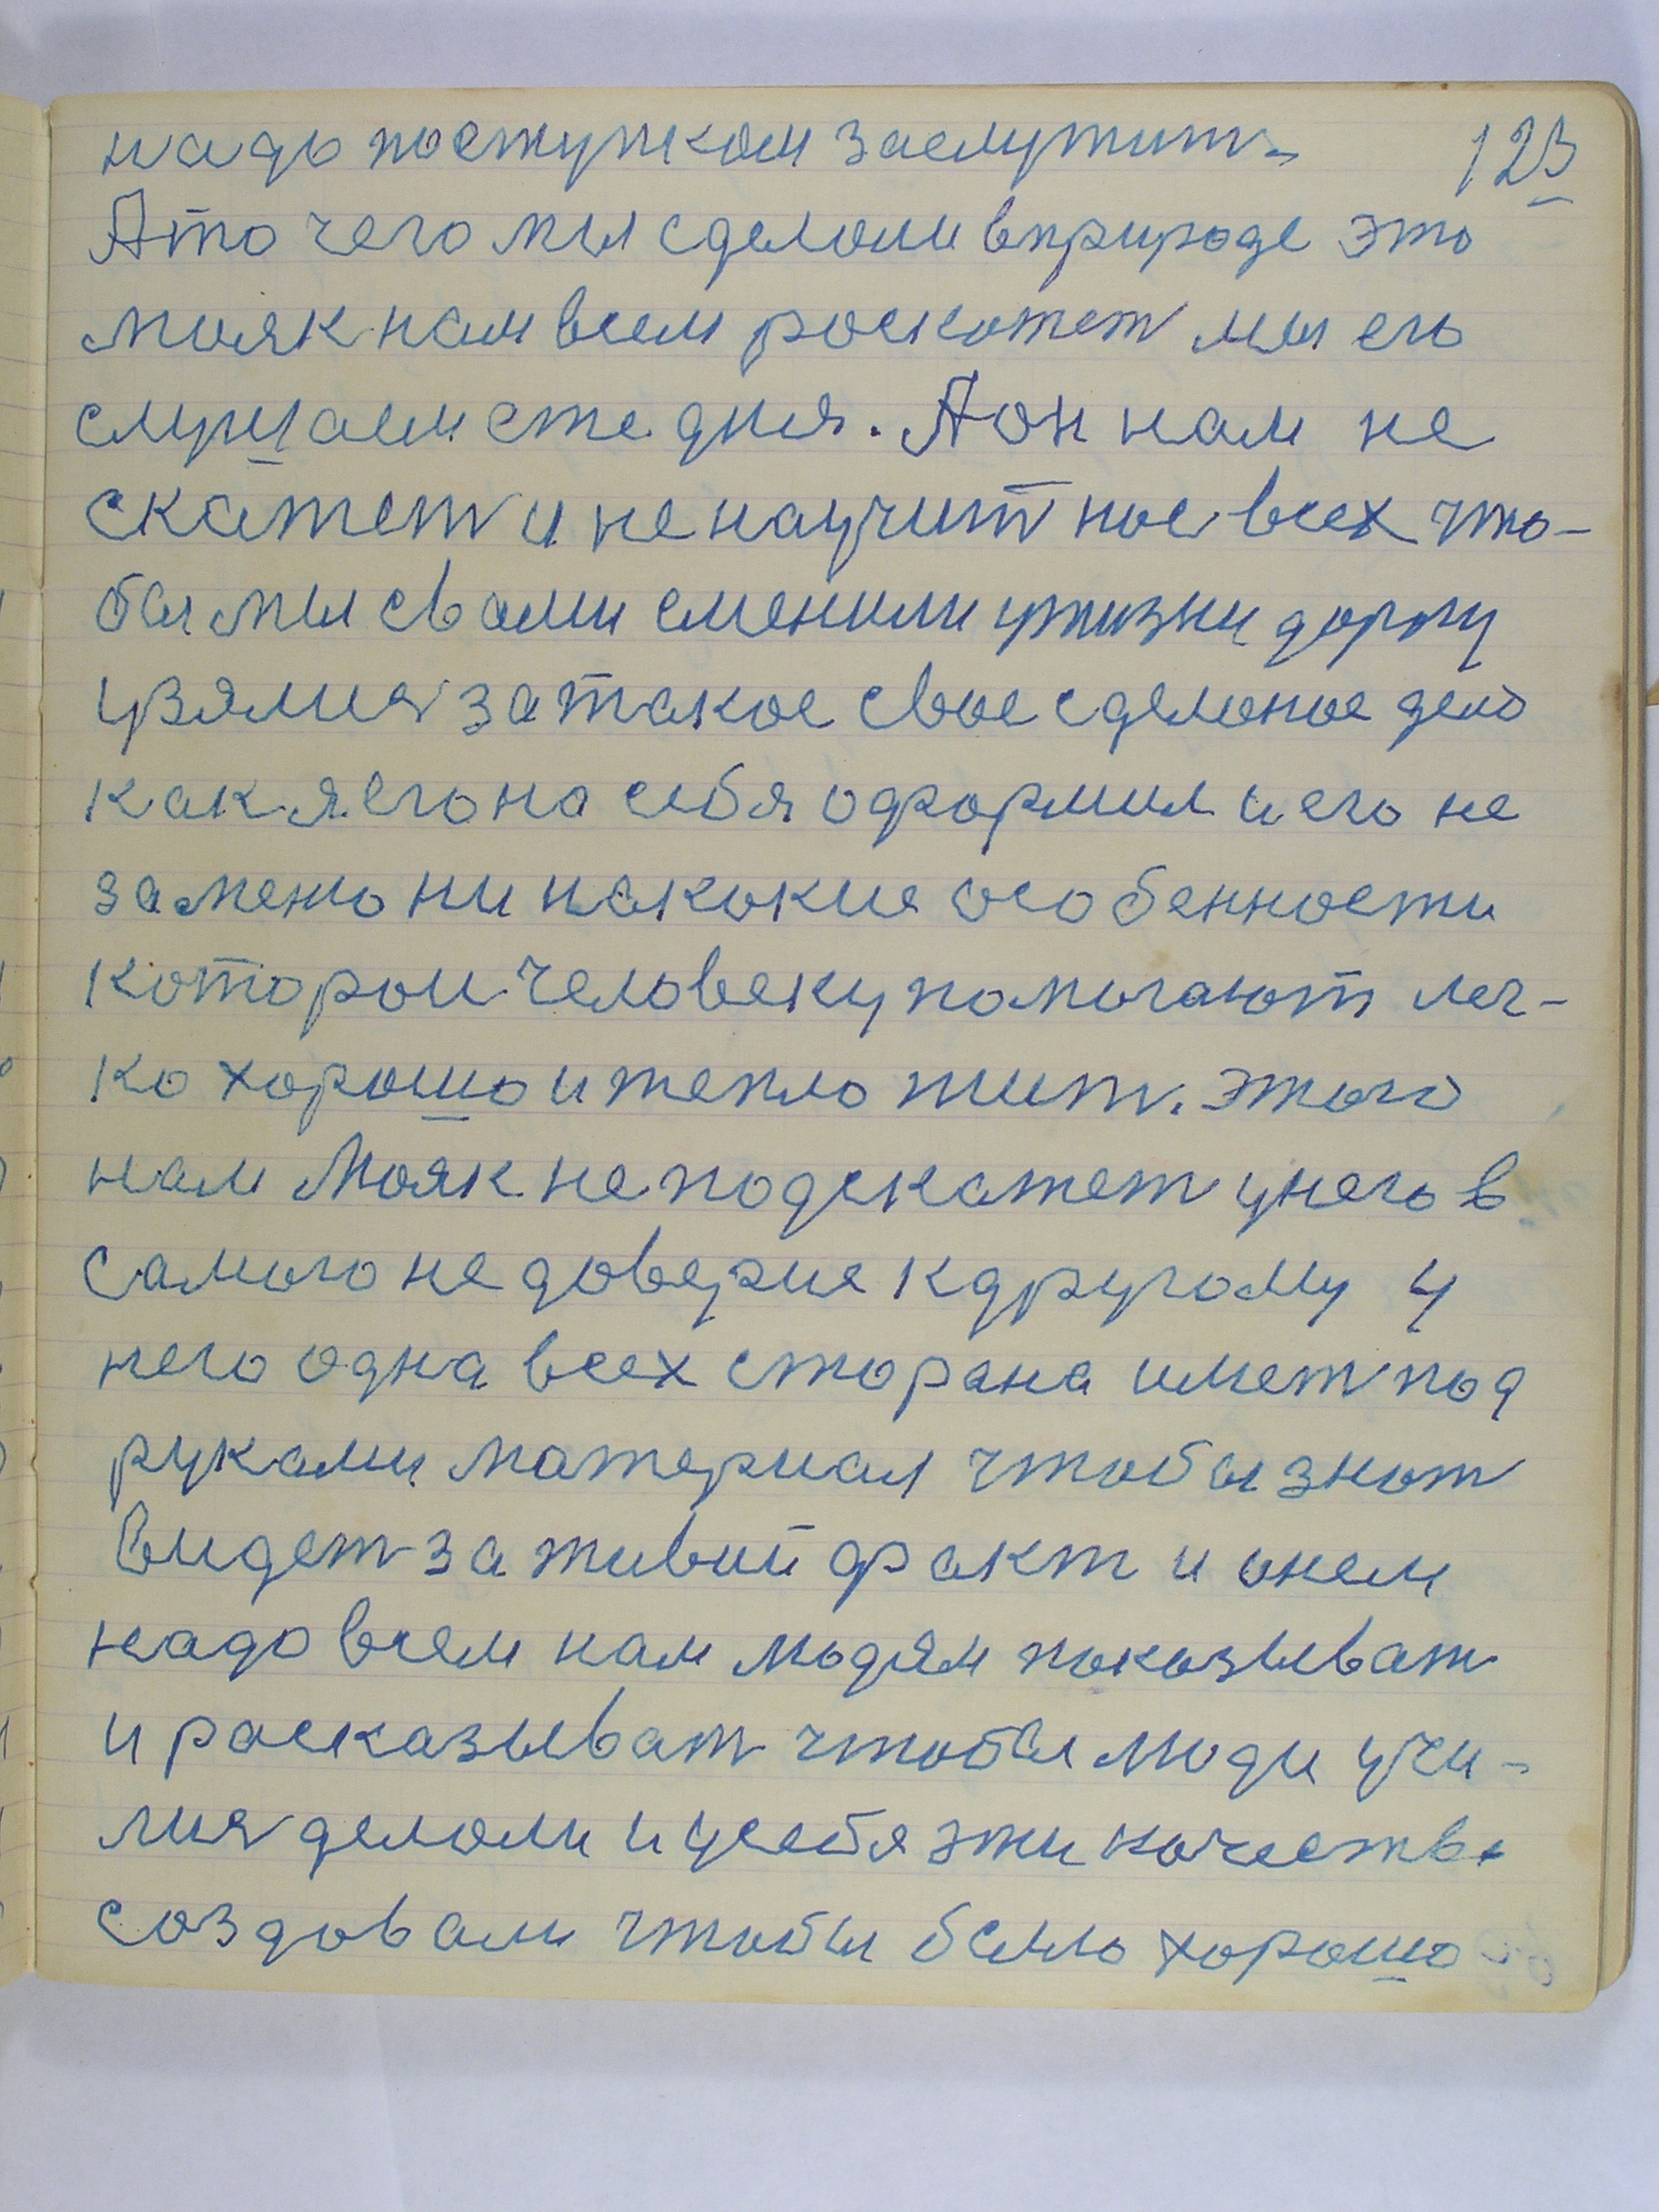 надо поступком заслужит. 123
А то чего мы сделали в природе это
маяк нам всем роскажет мы его
слушаем еже дня. А он нам не
скажет и не научит нас всех что-
бы мы с вами сменили у жизни дорогу
узялися за такое свое сделоное дело
как я его на себя оформил и его не
заменю ни накокие особенности
которои человеку помогают лег-
ко хорошо и тепло жит. этого
нам Маяк не подскажет у него в
самого не доверие к другому у
него одна всех сторана имет под
руками материал чтобы знат
видет за живой факт и онем
надо всем нам людям показыват
и расказыват чтобы люди учи-
лися делали и у себя эти качества
создовали чтобы было хорошо